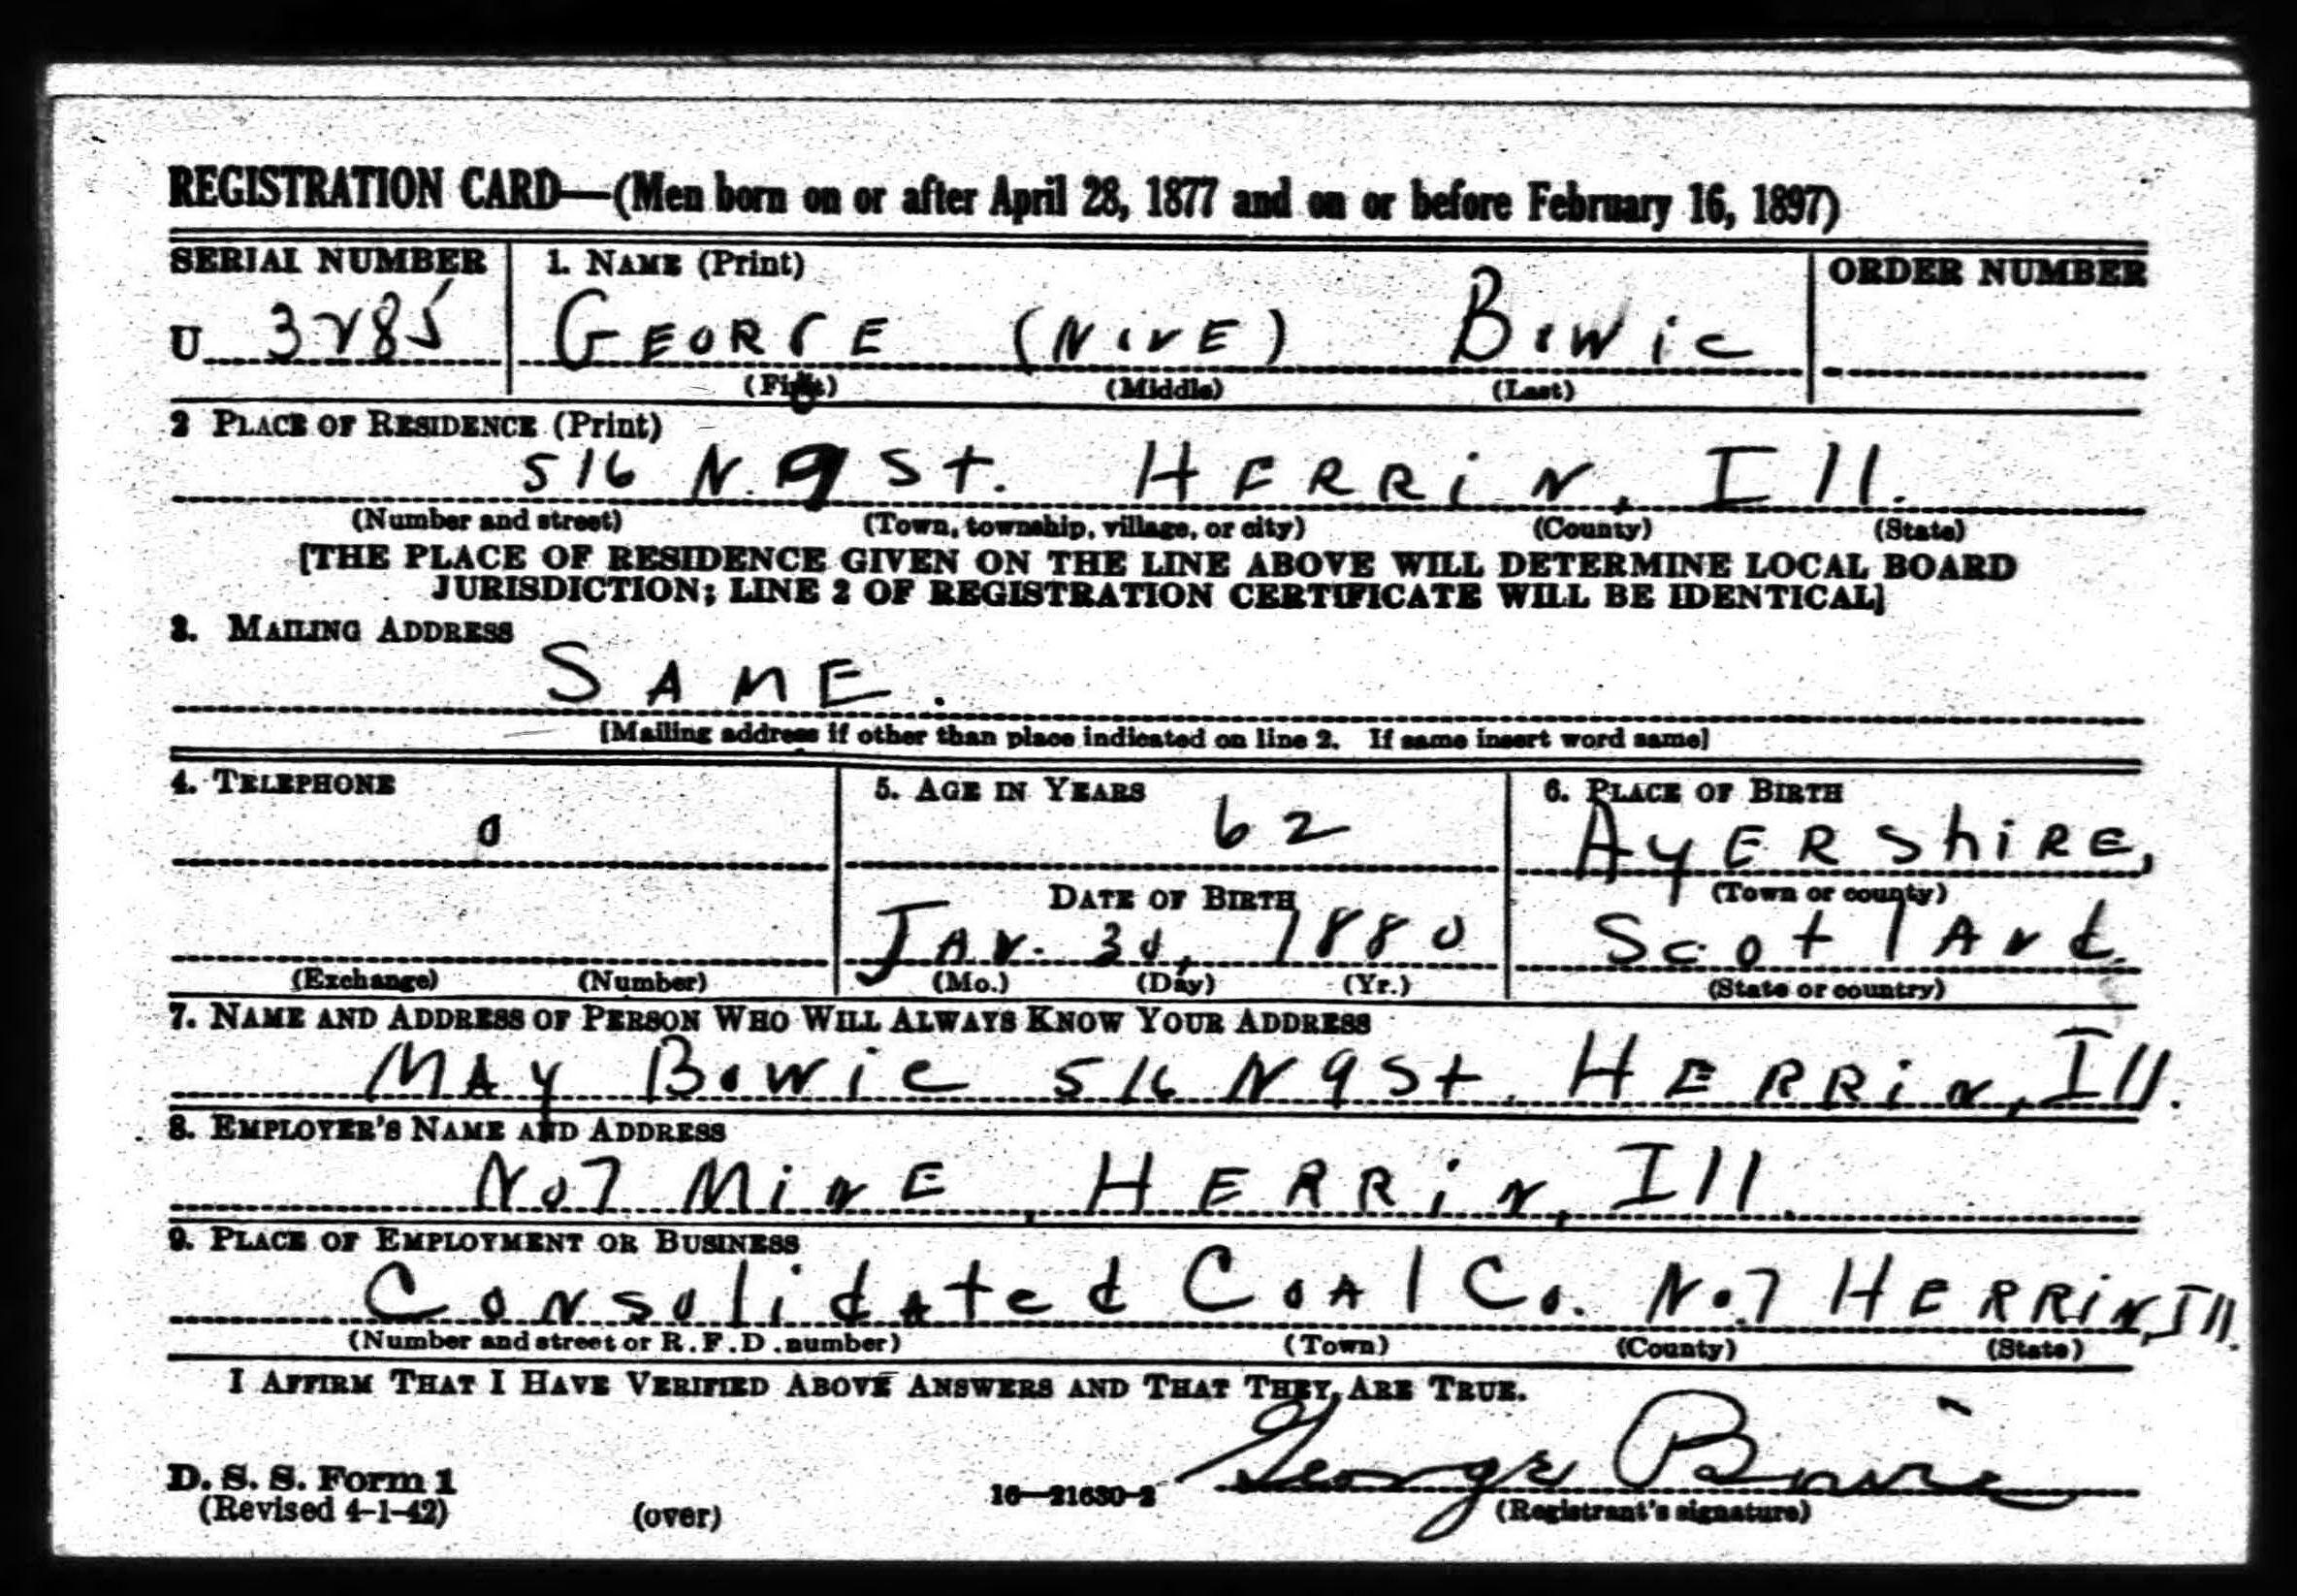 REGISTRATION CARD—(Men born on or after April 28, 1877 and on or before February 16, 1897)
SERIAL NUMBER 1. NAME (Print) ORDER NUMBER
U 3285 GEORGE (NONE) BOWIE
(First) (Middle) (Last)
2 PLACE OF RESIDENCE (Print)
516 N. 9 St. HERRIN, Ill.
(Number and street) (Town, township, village, or city) (County) (State)
[THE PLACE OF RESIDENCE GIVEN ON THE LINE ABOVE WILL DETERMINE LOCAL BOARD
JURISDICTION; LINE 2 OF REGISTRATION CERTIFICATE WILL BE IDENTICAL]
3. MAILING ADDRESS
SAME.
[Mailing address if other than place indicated on line 2. If same insert word same]
4. TELEPHONE 5. AGE IN YEARS 6. PLACE OF BIRTH
0 62 AyERShiRE,
DATE OF BIRTH (Town or county)
JAN. 30, 1880 ScotlAnd.
(Exchange) (Number) (Mo.) (Day) (Yr.) (State or country)
7. NAME AND ADDRESS OF PERSON WHO WILL ALWAYS KNOW YOUR ADDRESS
MAy Bowie 516 N 9 St. HERRiN, Ill.
8. EMPLOYER'S NAME AND ADDRESS
No 7 MiNE, HERRiN, Ill.
9. PLACE OF EMPLOYMENT OR BUSINESS
Consolidated CoAl Co. No. 7 HERRiN, Ill.
(Number and street or R.F.D. number) (Town) (County) (State)
I AFFIRM THAT I HAVE VERIFIED ABOVE ANSWERS AND THAT THEY ARE TRUE.
George Bowie
D. S. S. Form 1
(Revised 4-1-42) (over) 16—21630-2 (Registrant's signature)